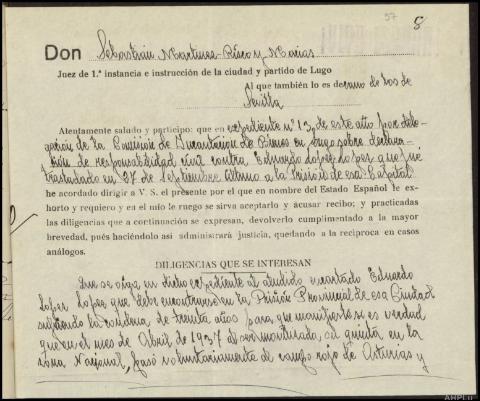 57
8
Don Sebastián Martinez-Risco y Macias
Juez de 1.ª instancia e instrucción de la ciudad y partido de Lugo
Al que también lo es decano de los de
Sevilla
Atentamente saludo y participo: que en expediente nº 13, de este año por dele-
gación de la Comisión de Incautación de Bienes en Lugo sobre declara-
ción de responsabilidad civil contra Eduardo Lopez Lopez a que fué
trasladado en 27 de Septiembre último a la Prisión de esa Capital
he acordado dirigir a V. S. el presente por el que en nombre del Estado Español le ex-
horto y requiero y en el mío le ruego se sirva aceptarlo y acusar recibo; y practicadas
las diligencias que a continuación se expresan, devolverlo cumplimentado a la mayor
brevedad, pués haciéndolo así administrará justicia, quedando a la recíproca en casos
análogos.
DILIGENCIAS QUE SE INTERESAN
Que se oiga en dicho expediente al aludido encartado Eduardo
Lopez Lopez que debe encontrarse en la Prisión Provincial de esa Ciudad
sufriendo la condena de treinta años para que manifieste si es verdad
que en el mes de Abril de 1937 al ser movilizada su quinta en la
zona Nacional, pasó voluntariamente al campo rojo de Asturias y
AHPLu